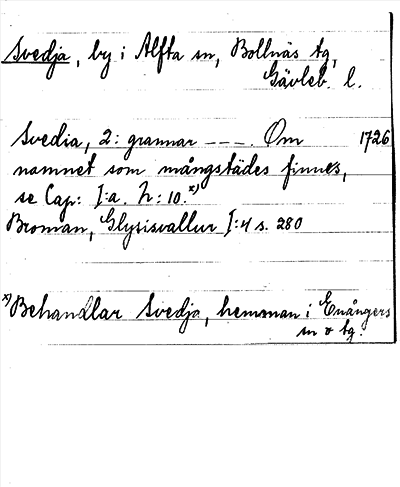 Svedja, by i Alfta sn, Bollnäs tg,
Gävleb. l.
Svedia, 2: grannar - - -. Om 1726
namnet som mångstädes finnes,
se Cap: I:a. n: 10.x)
Broman, Glysisvallur I:4 s. 280
x) Behandlar Svedja, hemman i Enångers
sn o tg.